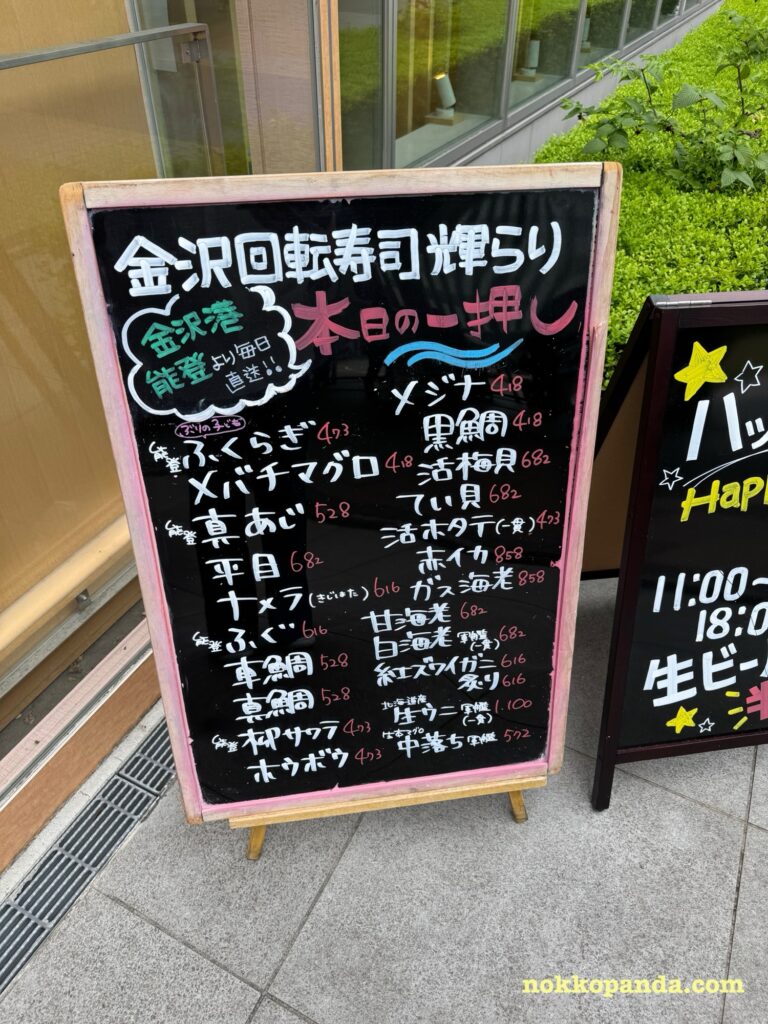 金沢回転寿司 輝らり
金沢港
能登より毎日
直送!!
本日の一押し
ぶりの子ども
能登 ふくらぎ 473
メバチマグロ 418
能登 真あじ 528
平目 682
ナメラ(きじはた) 616
能登 ふぐ 616
車鯛 528
真鯛 528
能登 柳サワラ 473
ホウボウ 473
メジナ 418
黒鯛 418
活梅貝 682
てい貝 682
活ホタテ(一貫) 473
ホイカ 858
ガス海老 858
甘海老 682
白海老 軍艦(一貫) 682
紅ズワイガニ 616
炙り 616
北海道産
生ウニ 軍艦(一貫) 1.100
中落ち 軍艦 572
ハッ
Happ
11:00~
18:0
生ビー
nokkopanda.com